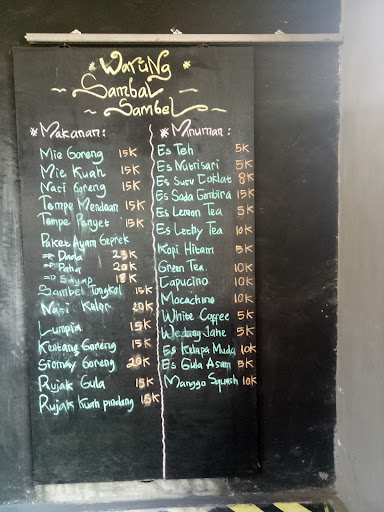 * Warung *
~ Sambal ~
~ Sambel ~
* Makanan :
Mie Goreng 15K
Mie Kuah 15K
Nasi Goreng 15K
Tempe Mendoan 15K
Tempe Penyet 15K
Paket Ayam Geprek
⇒ Dada 23K
⇒ Paha 20K
⇒ Sayap 18K
Sambel Tongkol 15K
Nasi Kelor 20K
Lumpia 15K
Kentang Goreng 15K
Siomay Goreng 20K
Rujak Gula 15K
Rujak Kuah pindang 15K
* Minuman :
Es Teh 5K
Es Nutrisari 5K
Es Susu Coklat 8K
Es Soda Gembira 15K
Es Lemon Tea 5K
Es Lechy Tea 10K
Kopi Hitam 5K
Green Tea 10K
Capucino 10K
Mocachino 10K
White Coffee 5K
Wedang Jahe 5K
Es Kelapa Muda 10K
Es Gula Asam 5K
Manggo Squash 10K